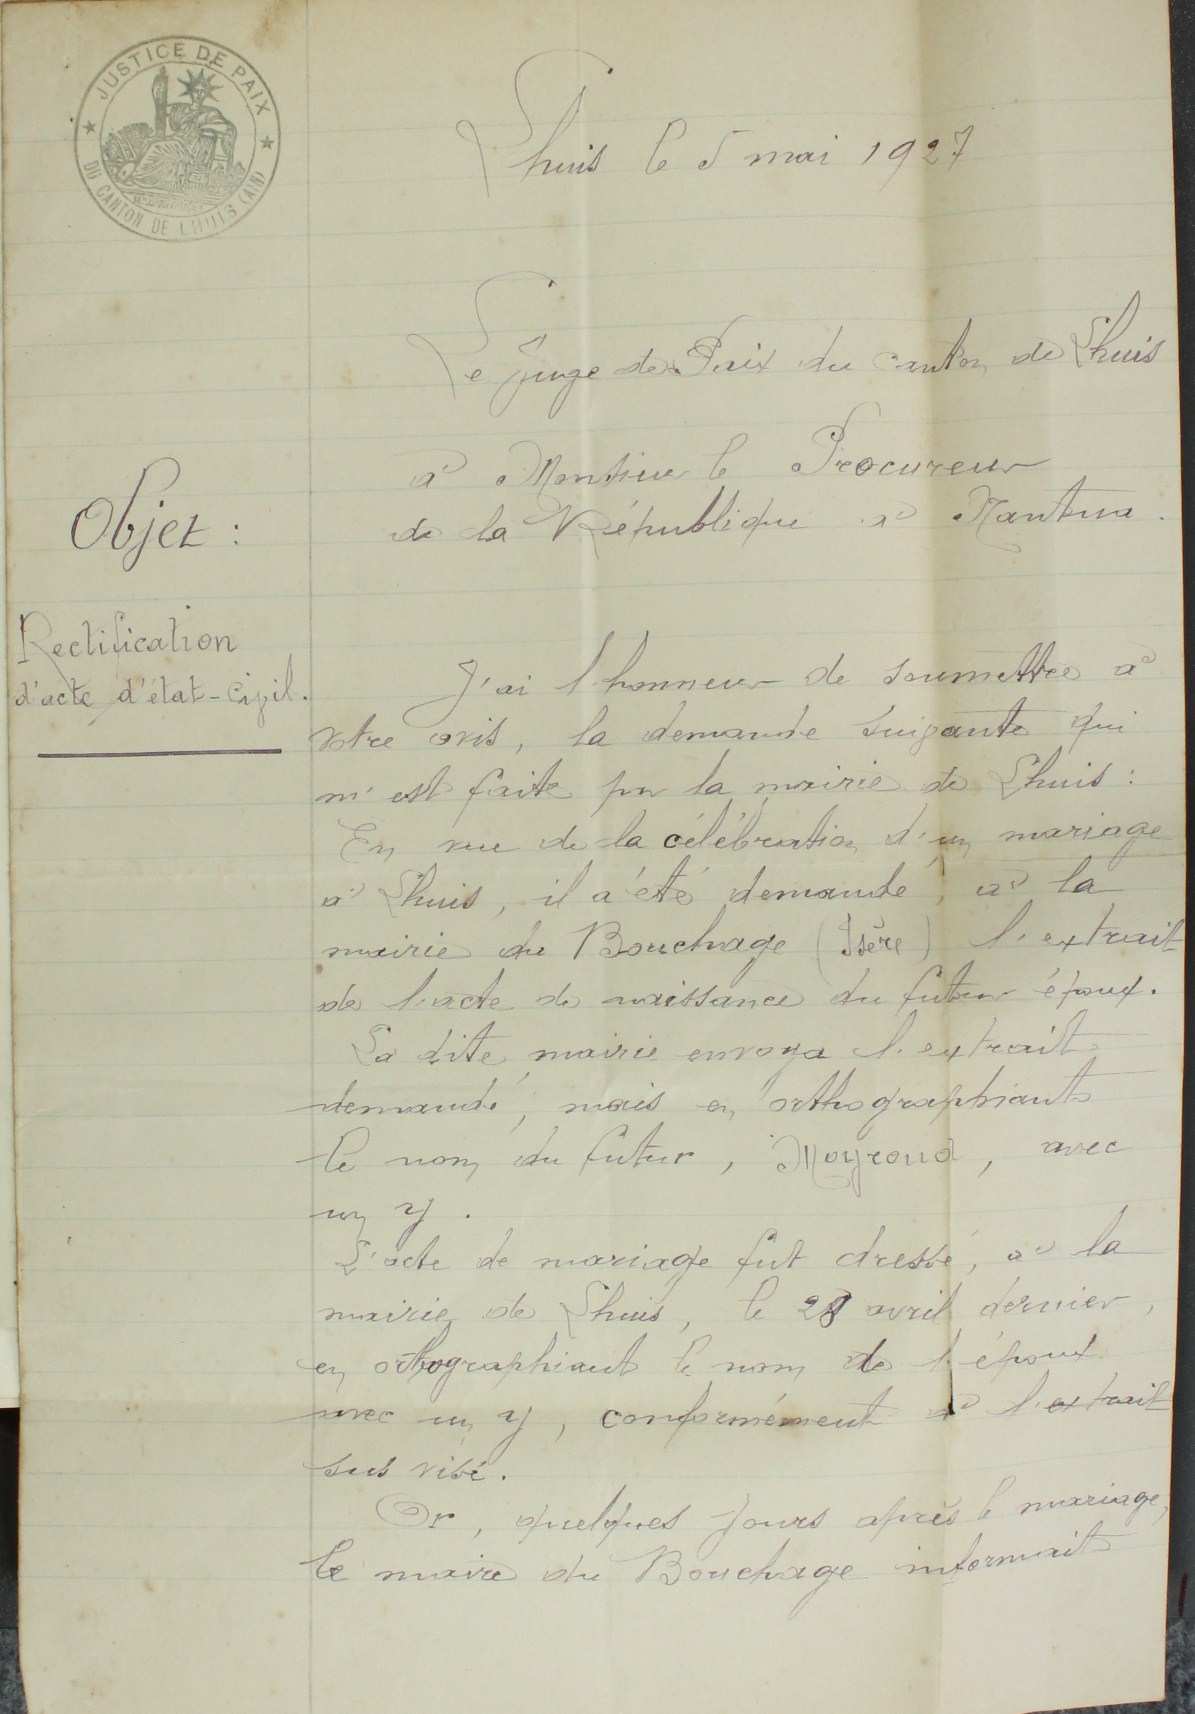 JUSTICE DE PAIX
DU CANTON DE LHUIS (AIN)
Lhuis le 5 mai 1927
Le Juge de Paix du canton de Lhuis
à Monsieur le Procureur
de la République à Nantua.
Objet :
Rectification
d'acte d'état-civil.
J'ai l'honneur de soumettre à
votre avis, la demande suivante qui
m'est faite par la mairie de Lhuis :
En vue de la célébration d'un mariage
à Lhuis, il a été demandé, à la
mairie du Bouchage (Isère) l'extrait
de l'acte de naissance du futur époux.
La dite mairie envoya l'extrait
demandé, mais en orthographiant
le nom du futur, Moyroud, avec
un y.
L'acte de mariage fut dressé, à la
mairie de Lhuis, le 28 avril dernier,
en orthographiant le nom de l'époux
avec un y, conformément à l'extrait
sus visé.
Or, quelques jours après le mariage,
le maire du Bouchage informait